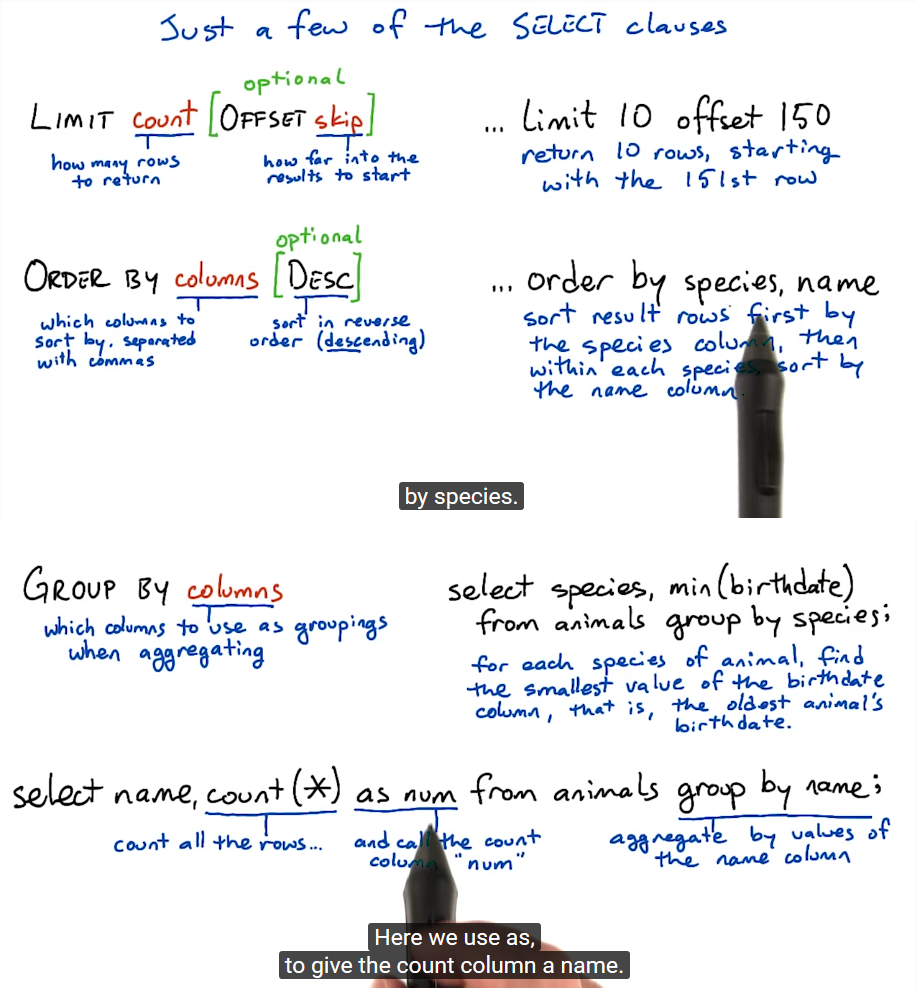 Just a few of the SELECT clauses
optional
LIMIT count [OFFSET skip]
how many rows
to return
how far into the
results to start
... limit 10 offset 150
return 10 rows, starting
with the 151st row
optional
ORDER BY columns [DESC]
which columns to
sort by, separated
with commas
sort in reverse
order (descending)
... order by species, name
sort result rows first by
the species column, then
within each species, sort by
the name column.
by species.
GROUP BY columns
which columns to use as groupings
when aggregating
select species, min(birthdate)
from animals group by species;
for each species of animal, find
the smallest value of the birthdate
column, that is, the oldest animal's
birthdate.
select name, count(*) as num from animals group by name;
count all the rows...
and call the count
column "num"
aggregate by values of
the name column
Here we use as,
to give the count column a name.